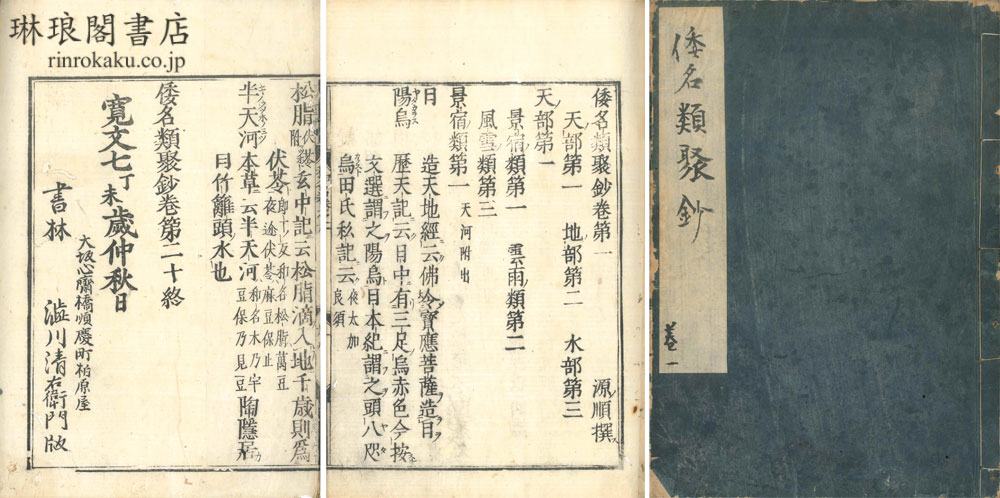 琳琅閣書店
rinrokaku.co.jp
倭名類聚鈔
巻一
倭名類聚鈔卷第一 源順撰
天部第一 地部第二 水部第三
天部第一
景宿類第一 雲雨類第二
風雪類第三
景宿類第一 天河附出
日 造天地經云佛令寶應菩薩造日
陽烏 歴天記云日中有三足烏赤色今按
文選謂之陽烏日本紀謂之頭八咫
烏田氏私記云
松脂 玄中記云松脂滴入地千歳則爲
伏苓
半天河 本草云半天河 陶隱居
曰竹籬頭水也
倭名類聚鈔卷第二十終
寛文七丁未歳仲秋日
大坂心齋橋順慶町柏原屋
書林 澁川清右衛門版